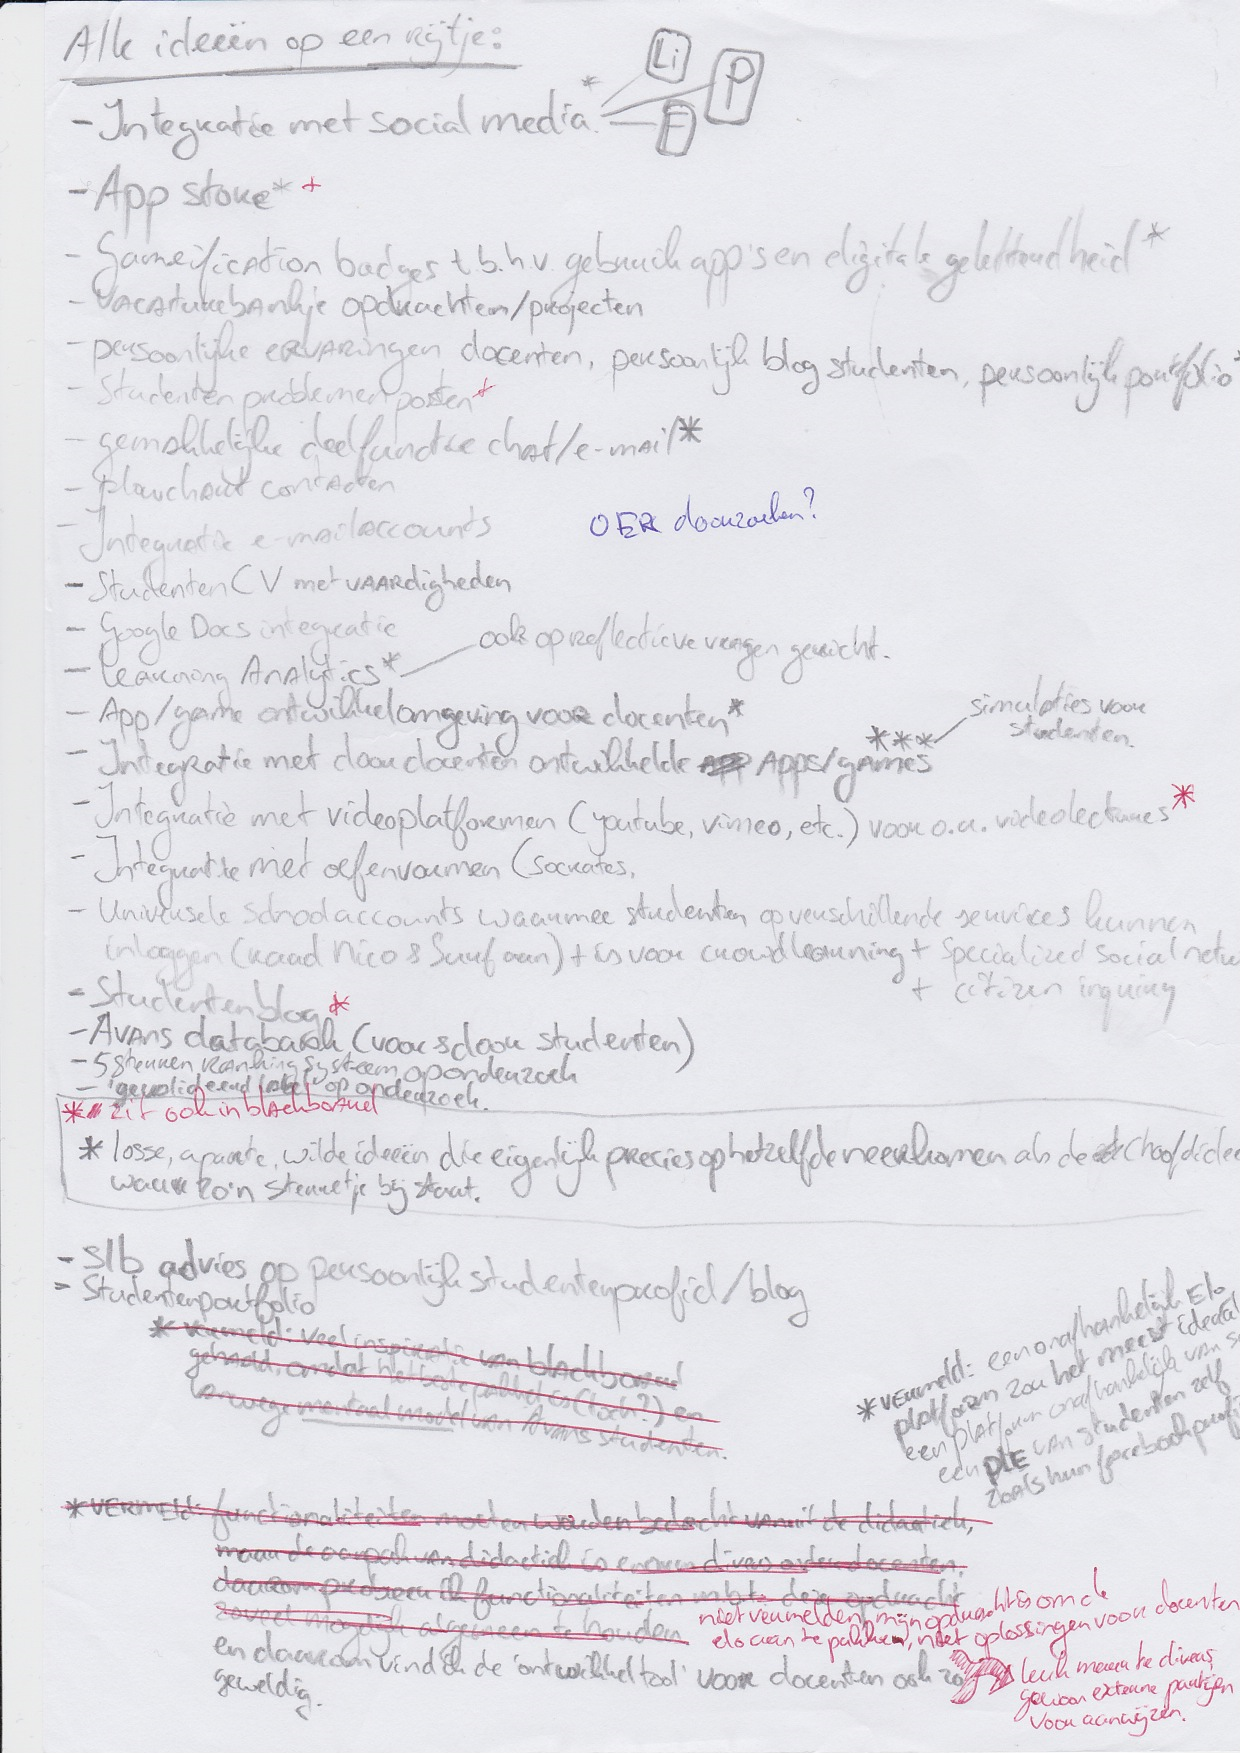 Alle ideeën op een rijtje:
Li
P
F
- Integratie met social media *
- App store * +
- Gameification badges t.b.h.v. gebruik app's en digitale geletterdheid *
- vacaturebankje opdrachten/projecten
- persoonlijke ervaringen docenten, persoonlijk blog studenten, persoonlijk portfolio *
- Studenten problemen posten +
- gemakkelijke deelfunctie chat/e-mail *
- flowchart contacten
OER doorzoeken?
- Integratie e-mailaccounts
- Studenten CV met vaardigheden
- Google Docs integratie
ook op reflectieve vragen gericht.
- Learning Analytics *
- App/game ontwikkelomgeving voor docenten *
simulaties voor
studenten.
***
- Integratie met door docenten ontwikkelde Apps/games
- Integratie met videoplatformen (youtube, vimeo, etc.) voor o.a. videolectures *
- Integratie met oefenvormen (Socrates,
- Universele schoolaccounts waarmee studenten op verschillende services kunnen
inloggen (raad Nico & Suuf aan) + is voor crowdlearning + specialized social netw
+ citizen inquiry
- Studentenblog *
- Avans databank (voor & door studenten)
- 5 sterren ranking systeem op onderzoek
- 'gevalideerd label' op onderzoek.
* zit ook in blackboard
* losse, aparte, wilde ideeën die eigenlijk precies op hetzelfde neerkomen als de hoofdidee
waar zo'n sterretje bij staat.
- slb advies op persoonlijk studentenprofiel/blog
- Studentenportfolio
* vermeld: veel inspiratie van blackboard
gehad, omdat het beste pakket is (toch?) en
vanwege mentaal model van Avans studenten.
* vermeld: een onafhankelijk Elo
platform zou het meest ideaal
een platform onafhankelijk van
een PLE van studenten zelf
zoals hun facebookprofi
* VERMELD: functionaliteiten moeten worden bedacht vanuit de didactiek,
maar de aanpak van didactiek is enorm divers onder docenten,
daarom probeer ik functionaliteiten m.b.t. deze opdracht
zoveel mogelijk algemeen te houden
niet vermelden, mijn opdracht is om de
elo aan te pakken, niet oplossingen voor docenten
en daarom vind ik de 'ontwikkeltool' voor docenten ook zo
geweldig.
leuk maar te divers,
gewoon externe partijen
voor aanwijzen.